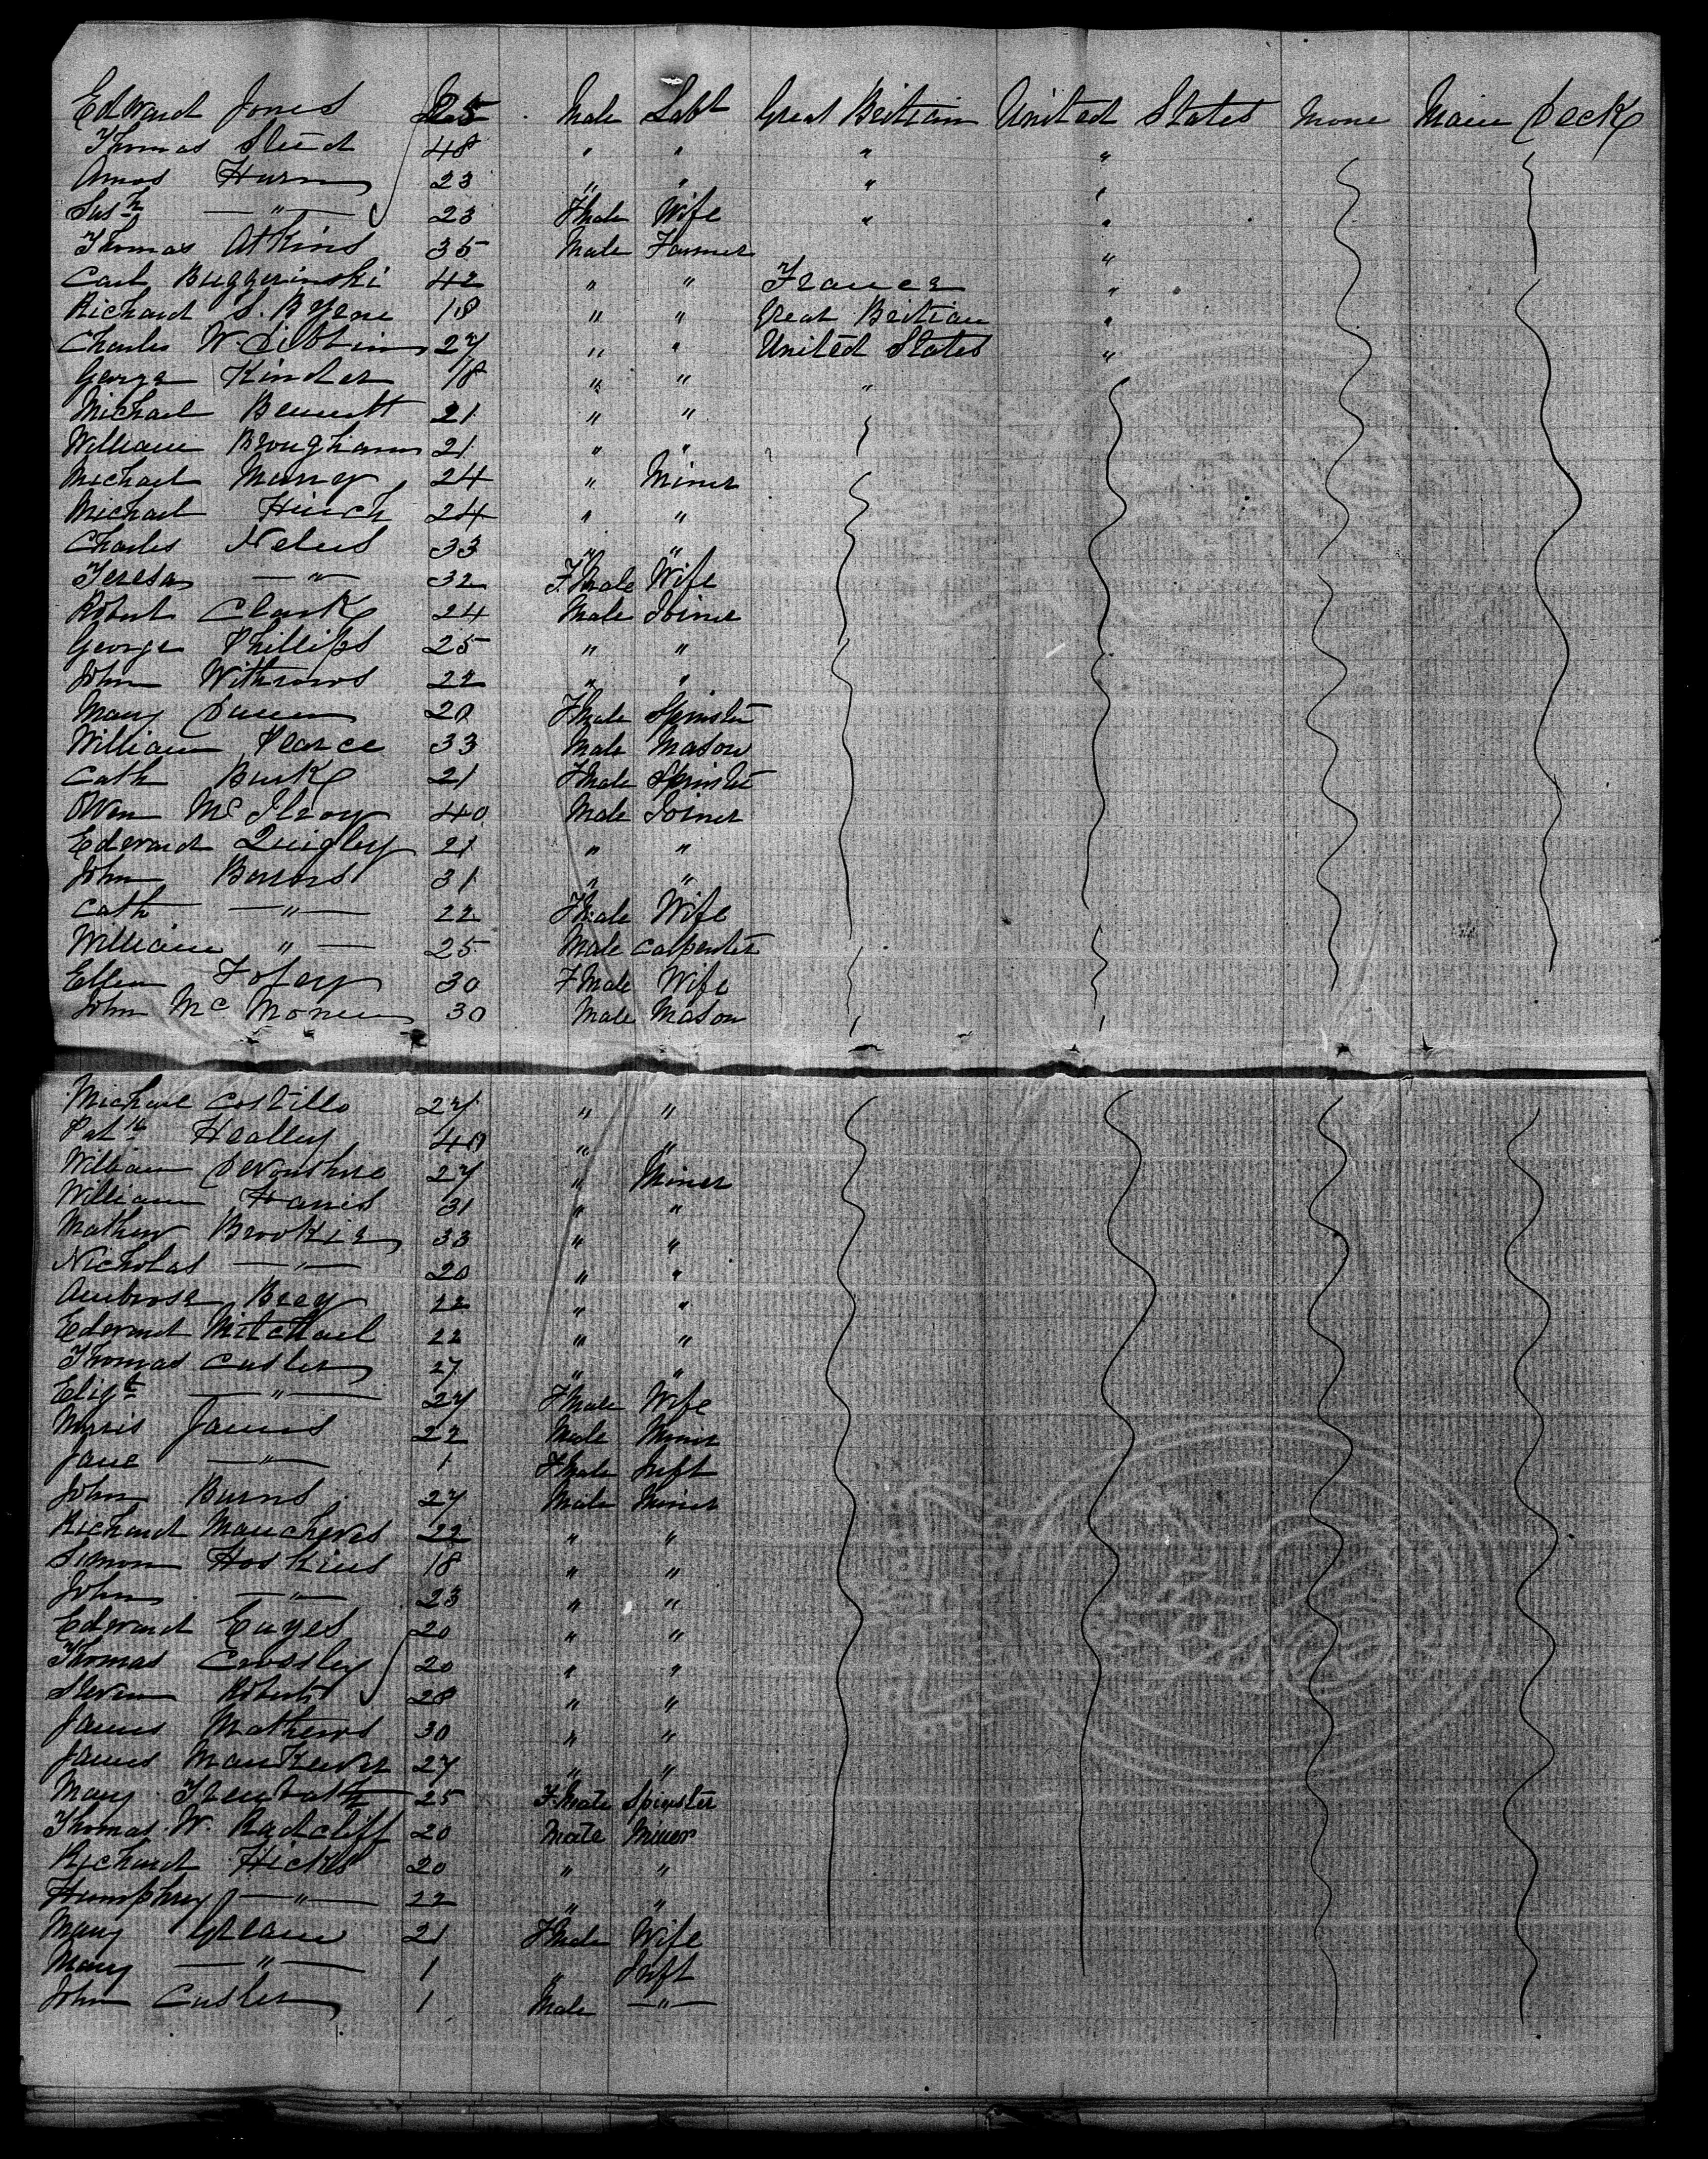 Edward Jones 25 Male Labt Great Britian United States None Main Deck
Thomas Steed 48 " " " "
Amos Hurn 23 " " " "
Sush —"— 23 Fmale Wife " "
Thomas Atkins 35 Male Farmer "
Carl Buggerinski 42 " " France "
Richard S. Byrne 18 " " Great Britian "
Charles W. Dibblin 27 " " United States "
George Kinder 18 " " "
Michael Bennett 21 " "
William Brougham 21 " "
Michael Murry 24 " Miner
Michael Hinch 24 " "
Charles Nelus 33 " "
Teresa —"— 32 F.Male Wife
Robert Clark 24 Male Joiner
George Phillips 25 " "
John Withrows 22 " "
Mary Dunn 20 Fmale Spinster
William Pearce 33 Male Mason
Cath Burk 21 Fmale Spinster
Owen McIlroy 40 Male Joiner
Edward Quigley 21 " "
John Barons 31 " "
Cath —"— 22 Fmale Wife
William " — 25 Male Carpenter
Ellen Foley 30 Fmale Wife
John Mc 30 Male Mason
Michael Costillo 27 " "
Patk Healley 40 " "
William Devonshire 27 " Miner
William Harris 31 " "
Mathew Brookie 33 " "
Nicholas —"— 20 " "
Ambrose Bray 22 " "
Edward Mitchael 22 " "
Thomas Cusler 27 " "
Eligt —"— 27 Fmale Wife
Morris James 22 Male Miner
Jane —"— 1 Fmale Inft
John Burns 27 Male Miner
Richard Mancheres 22 " "
Simon Hoskins 18 " "
John —"— 23 " "
Edward Eayes 20 " "
Thomas Crossley 20 " "
Steven Roberts 28 " "
James Mathews 30 " "
James Mankever 27 " "
Mary Trenbath 25 F.Male Spinster
Thomas W. Radcliff 20 Male Miner
Richard Hicks 20 " "
Humphrey —"— 22 " "
Mary 21 Fmale Wife
Mary —"— 1 " Inft
John Cusler 1 Male —"—